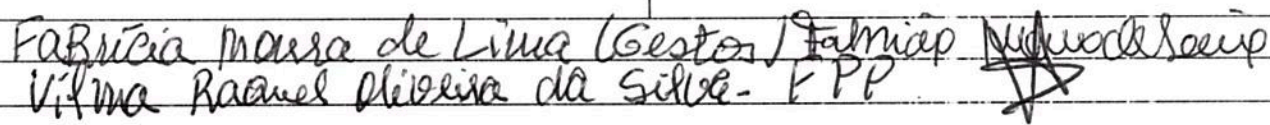 Fabrícia Moura de Lima (Gestor)
Vilma Raquel Oliveira da Silva - EPP